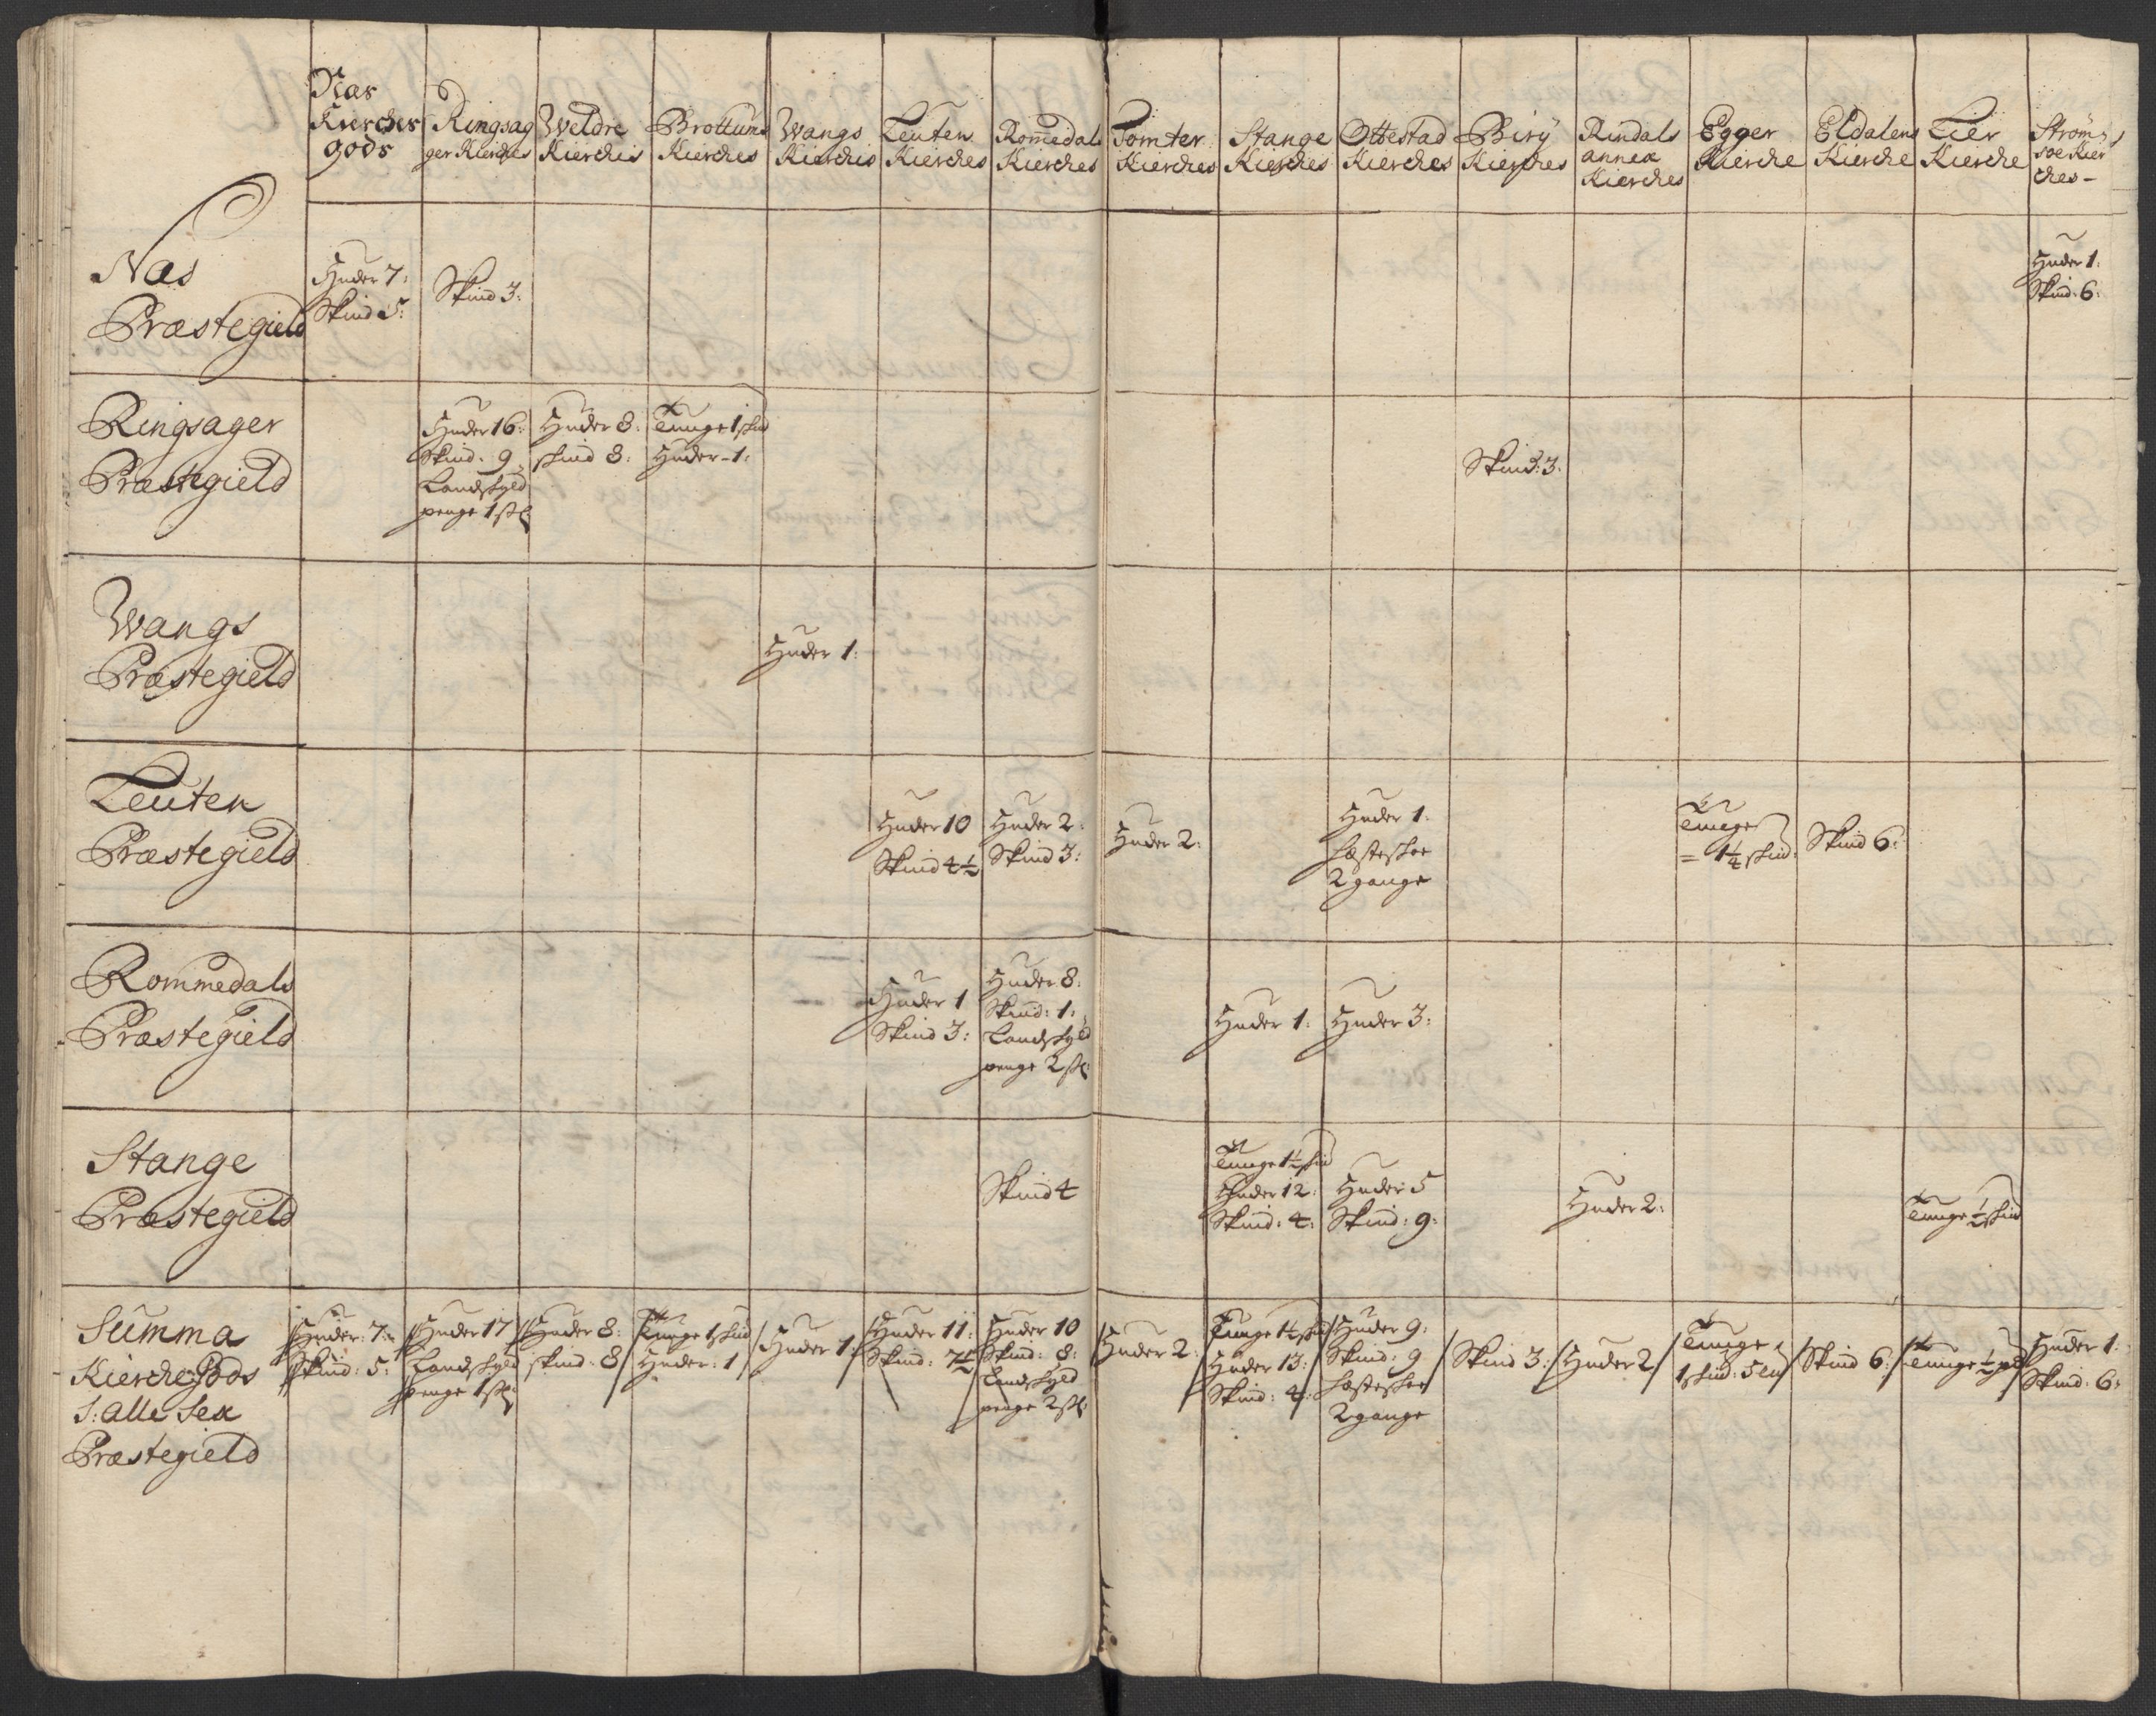 Næs
Kierches
gods
Ringsag
ger Kierches
Weldre
Kierchis
Brottums
Kierches
Wangs
Kierchis
Leuten
Kierches
Romedals
Kierches
Tomter
Kierches
Stange
Kierches
Ottestad
Kierches
Biry
Kierches
Rindals
annex
Kierches
Egger
Kierche
Eldalens
Kierche
Lier
Kierche
Strøms
soe Kier
ches -
Næs
Præstegield
Huder 7:
Skind 5:
Skind 3:
Huder 1:
Skind: 6:
Ringsager
Præstegield
Huder 16:
Skind: 9
Landskyld
penge 1 sk
Huder 8:
skind 8:
Tunge 1 skind
Huder - 1:
Skind: 3:
Wangs
Præstegield
Huder 1:
Leuten
Præstegield
Huder 10
Skind 4½
Huder 2:
Skind 3:
Huder 2:
Huder 1:
Hæsteskoe
2 gange
Tunge
= 1¼ skind:
Skind 6:
Rommedals
Præstegield
Huder 1
Skind 3:
Huder 8:
Skind: 1:
Landskyld
penge 2 sk
Huder 1:
Huder 3:
Stange
Præstegield
Skind 4
Tunge 1½ skind
Huder 12:
Skind: 4:
Huder 5
Skind: 9:
Huder 2:
Tunge ½ skind
Summa
Kierche Gods
I: alle Sex
Præstegield
Huder: 7:
Skind: 5:
Huder 17
Landskyld
penge 1 sk
Huder 8:
skind: 8
Tunge 1 skind
Huder: 1
Huder 1:
Huder 11:
Skind: 7½
Huder 10
Skind: 8:
Landskyld
penge 2 sk:
Huder 2:
Tunge 1½ skind
Huder 13:
Skind: 4:
Huder 9:
Skind: 9
Hæsteskoe
2 gange
Skind 3:
Huder 2
Tunge
1 skind: 5
Skind 6:
Tunge ½
Huder 1:
Skind: 6: